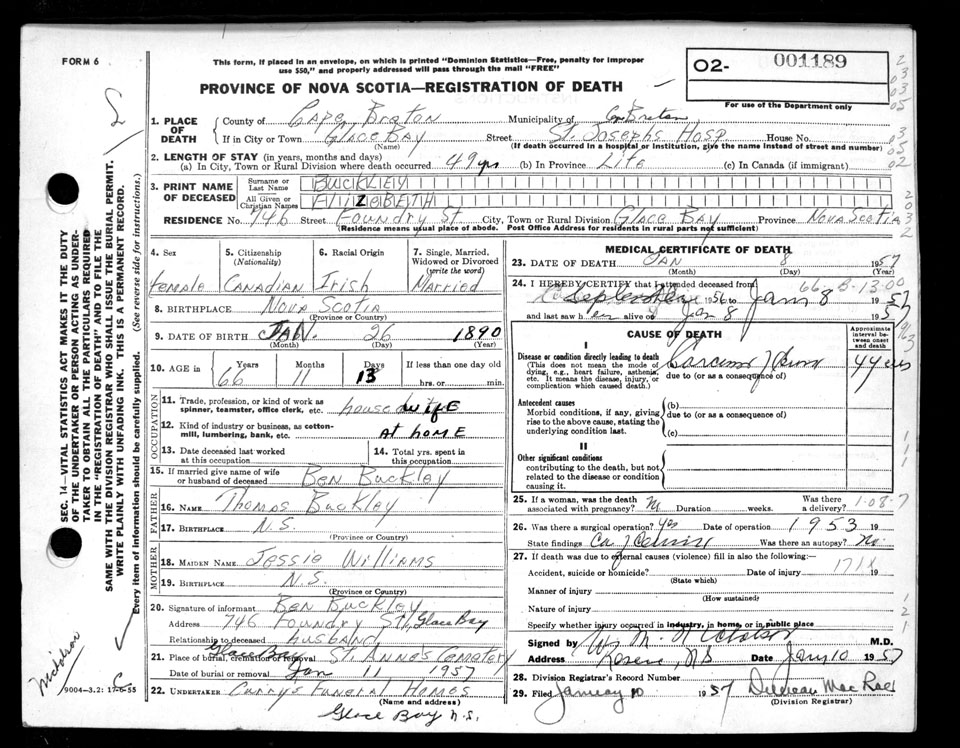 FORM 6
This form, if placed in an envelope, on which is printed "Dominion Statistics—Free, penalty for improper
use $50," and properly addressed will pass through the mail "FREE"
O2- 001189
For use of the Department only
PROVINCE OF NOVA SCOTIA—REGISTRATION OF DEATH
1. PLACE OF DEATH County of Cape Breton Municipality of Cape Breton
If in City or Town Glace Bay Street St. Josephs Hosp. House No.
(Name) (If death occurred in a hospital or institution, give the name instead of street and number)
2. LENGTH OF STAY (in years, months and days)
(a) In City, Town or Rural Division where death occurred 49 yrs (b) In Province Life (c) In Canada (if immigrant)
3. PRINT NAME OF DECEASED Surname or Last Name BUCKLEY
All Given or Christian Names ELIZEBETH
RESIDENCE No. 746 Street Foundry St City, Town or Rural Division Glace Bay Province Nova Scotia
(Residence means usual place of abode. Post Office Address for residents in rural parts not sufficient)
4. Sex Female
5. Citizenship (Nationality) Canadian
6. Racial Origin Irish
7. Single, Married, Widowed or Divorced (write the word) Married
8. BIRTHPLACE Nova Scotia
(Province or Country)
9. DATE OF BIRTH JAN. 26 1890
(Month) (Day) (Year)
10. AGE Years 66 Months 11 Days 13 If less than one day old
hrs. or min.
OCCUPATION
11. Trade, profession, or kind of work as
spinner, teamster, office clerk, etc. housewife
12. Kind of industry or business, as cotton-
mill, lumbering, bank, etc. At home
13. Date deceased last worked
at this occupation
14. Total yrs. spent in
this occupation
15. If married give name of wife
or husband of deceased Ben Buckley
FATHER
16. NAME Thomas Buckley
17. BIRTHPLACE N.S.
(Province or Country)
MOTHER
18. MAIDEN NAME Jessie Williams
19. BIRTHPLACE N.S.
(Province or Country)
20. Signature of informant Ben Buckley
Address 746 Foundry St., Glace Bay
Relationship to deceased husband
21. Place of burial, cremation or removal Glace Bay St. Anne's Cemetery
Date of burial or removal Jan 11 1957
22. UNDERTAKER Currys Funeral Homes
(Name and address)
Glace Bay N.S.
MEDICAL CERTIFICATE OF DEATH
23. DATE OF DEATH Jan 8 1957
(Month) (Day) (Year)
24. I HEREBY CERTIFY that I attended deceased from
September 1956 to Jan 8 1957
and last saw her alive on Jan 8 1957
66-8-13-00
CAUSE OF DEATH
Approximate interval between onset and death
I
Disease or condition directly leading to death
(This does not mean the mode of
dying, e.g., heart failure, asthenia,
etc. It means the disease, injury, or
complication which caused death.)
Carcinoma of Cervix 4 years
due to (or as a consequence of)
Antecedent causes
Morbid conditions, if any, giving
rise to the above cause, stating the
underlying condition last.
(b)
due to (or as a consequence of)
(c)
II
Other significant conditions
contributing to the death, but not
related to the disease or condition
causing it.
25. If a woman, was the death
associated with pregnancy? No Duration weeks. Was there
a delivery?
26. Was there a surgical operation? Yes Date of operation 1953 19
State findings Ca of Cervix Was there an autopsy? No
27. If death was due to external causes (violence) fill in also the following:—
Accident, suicide or homicide? Date of injury 19
(State which)
171X
Manner of injury
(How sustained)
Nature of injury
Specify whether injury occurred in industry, in home, or in public place
Signed by M.D.
Address Reserve, N.S. Date Jany 10 1957
28. Division Registrar's Record Number
29. Filed January 10 1957 MacRae
(Division Registrar)
SEC. 14—VITAL STATISTICS ACT MAKES IT THE DUTY
OF THE UNDERTAKER OR PERSON ACTING AS UNDER-
TAKER TO OBTAIN ALL THE PARTICULARS REQUIRED
IN THE "REGISTRATION OF DEATH" AND TO FILE THE
SAME WITH THE DIVISION REGISTRAR WHO SHALL ISSUE THE BURIAL PERMIT.
WRITE PLAINLY WITH UNFADING INK. THIS IS A PERMANENT RECORD.
Every item of information should be carefully supplied. (See reverse side for instructions.)
Nicholson
9004—3.2: 17-6-55